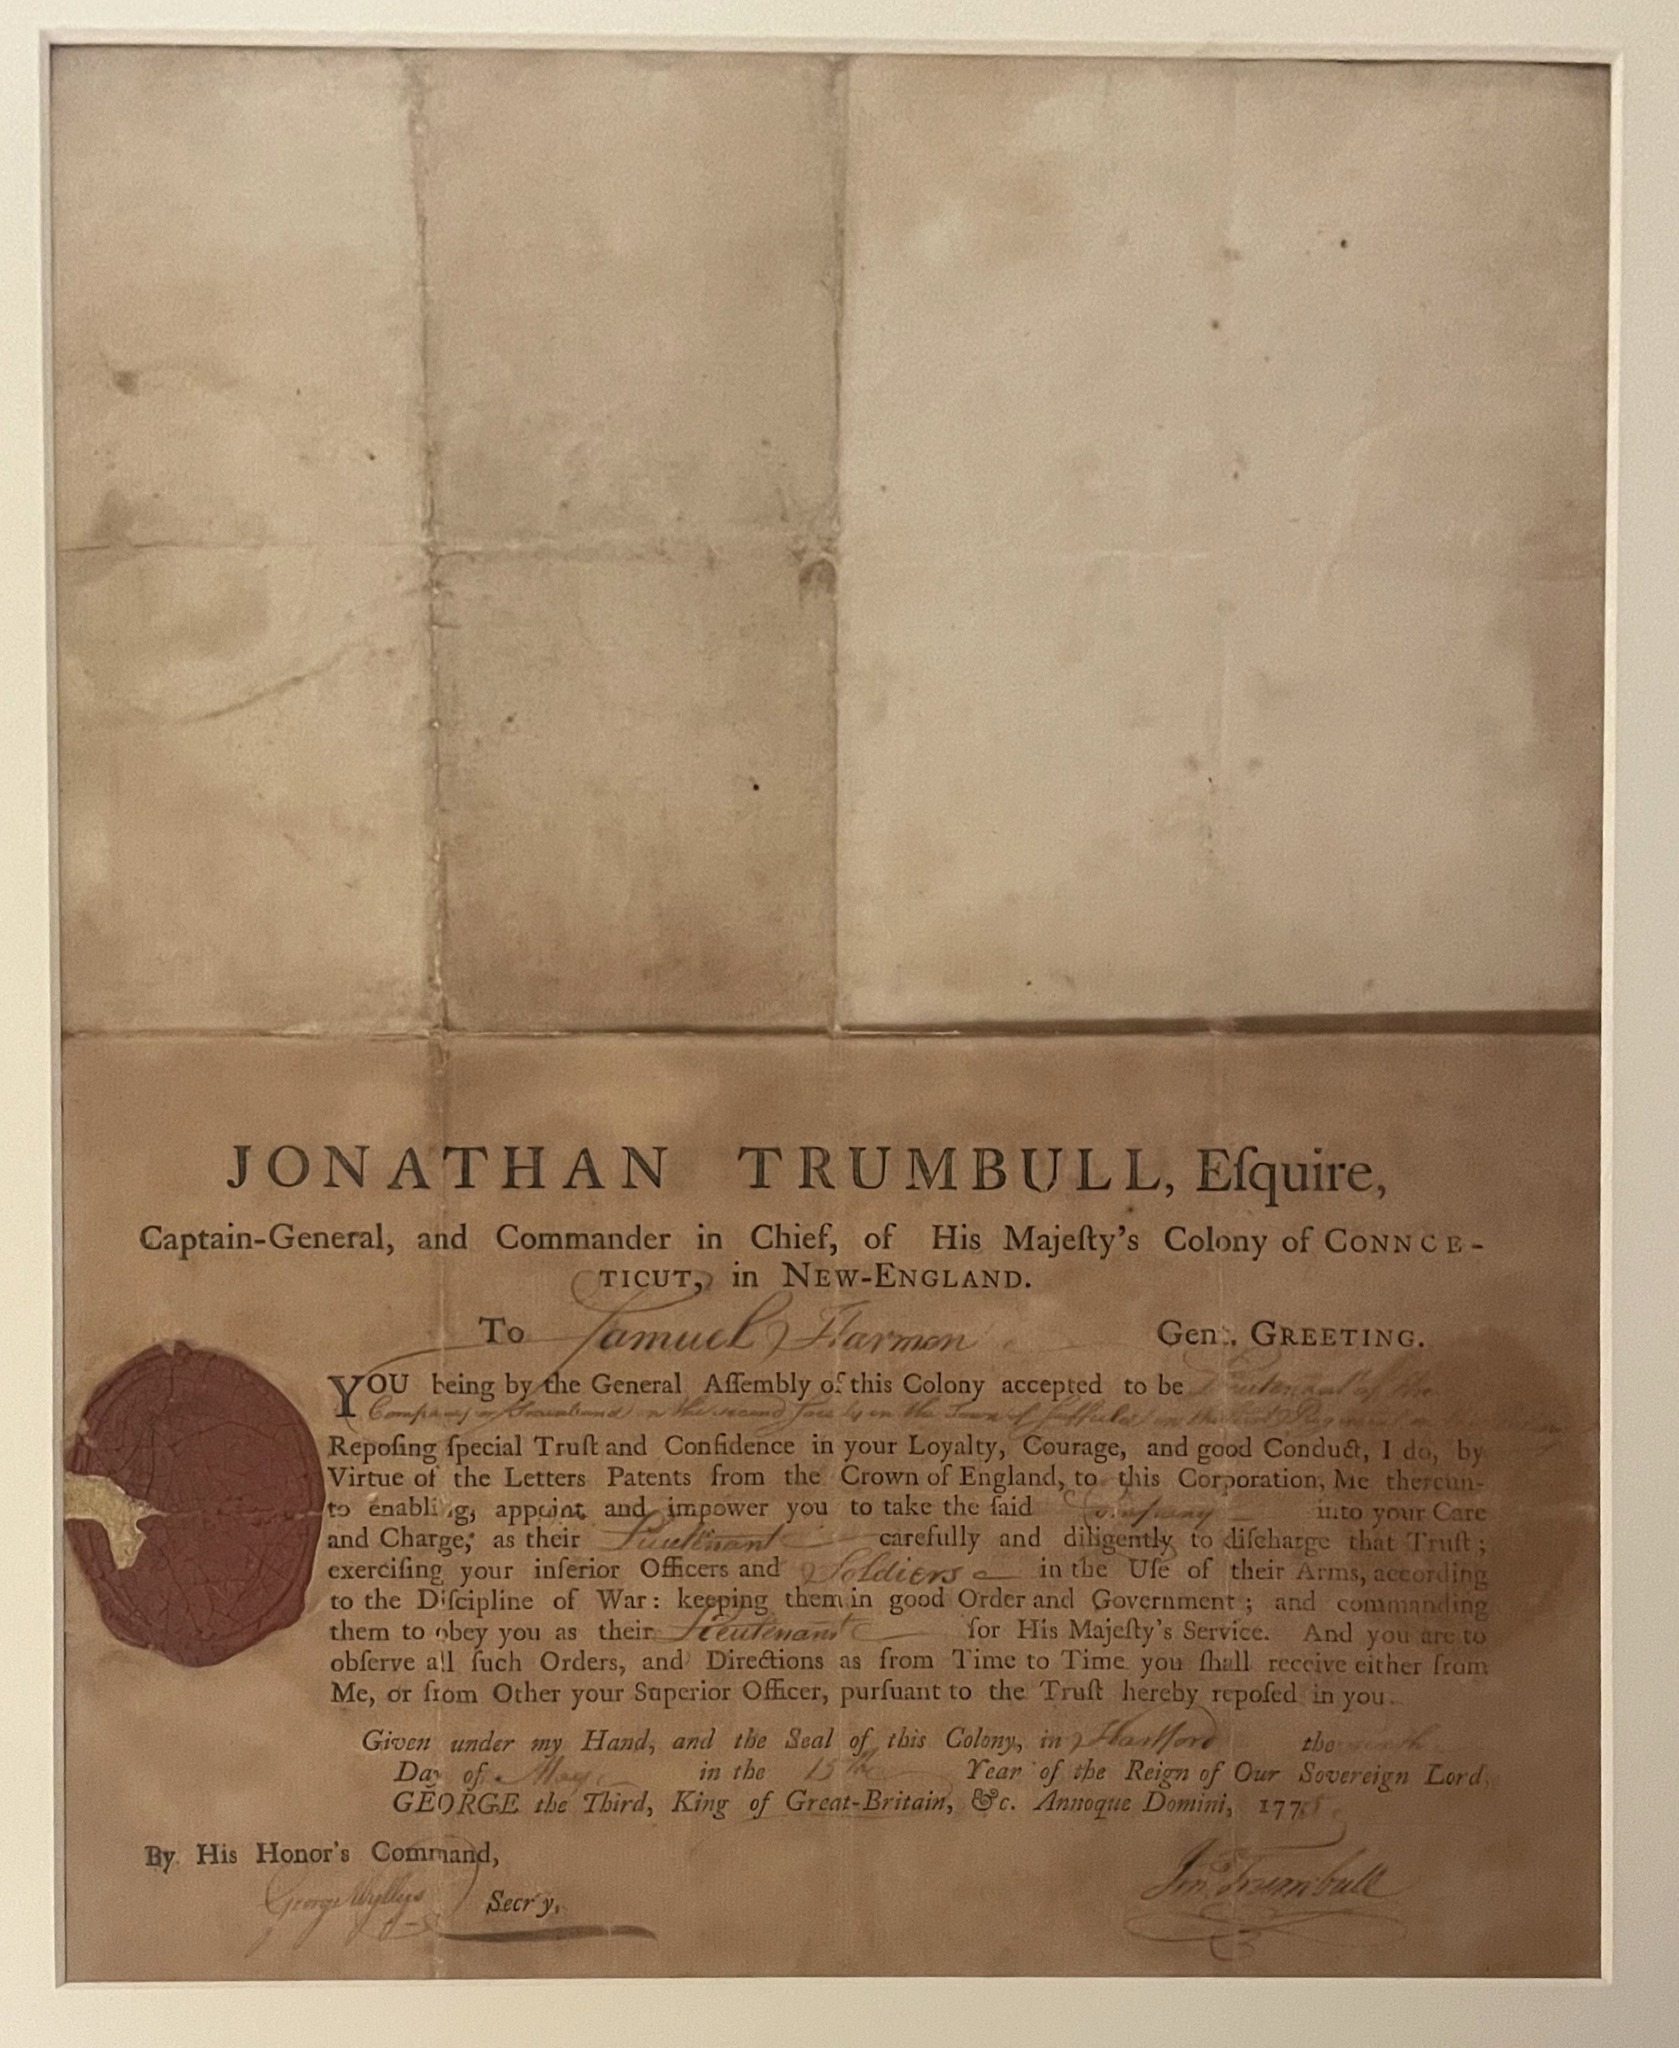 JONATHAN TRUMBULL, Eſquire,
Captain-General, and Commander in Chief, of His Majeſty's Colony of CONNCE-
TICUT, in NEW-ENGLAND.
To Samuel Harmon Gent. GREETING.
YOU being by the General Aſſembly of this Colony accepted to be Lieutenant of the
Company or Trainband in the second Society in the Town of Suffield in the first Regiment in
Repoſing ſpecial Truſt and Confidence in your Loyalty, Courage, and good Conduct, I do, by
Virtue of the Letters Patents from the Crown of England, to this Corporation, Me thereun-
to enabling, appoint and impower you to take the ſaid Company into your Care
and Charge, as their Lieutenant carefully and diligently to diſcharge that Truſt;
exerciſing your inferior Officers and Soldiers in the Uſe of their Arms, according
to the Diſcipline of War: keeping them in good Order and Government; and commanding
them to obey you as their Lieutenant for His Majeſty's Service. And you are to
obſerve all ſuch Orders, and Directions as from Time to Time you ſhall receive either from
Me, or from Other your Superior Officer, purſuant to the Truſt hereby repoſed in you.
Given under my Hand, and the Seal of this Colony, in Hartford the
Day of May in the 15th Year of the Reign of Our Sovereign Lord,
GEORGE the Third, King of Great-Britain, &c. Annoque Domini, 1775.
By His Honor's Command,
George Wyllys Secr'y,
Jon. Trumbull